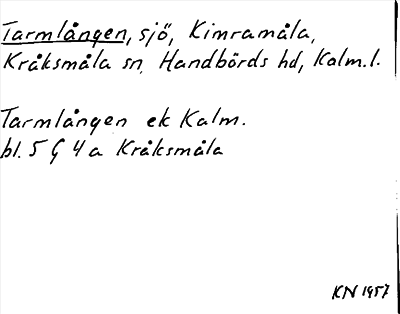 Tarmlången, sjö, Kimramåla,
Kråksmåla sn, Handbörds hd, Kalm.l.
Tarmlången ek Kalm.
bl. 5 G 4 a Kråksmåla
KN 1957